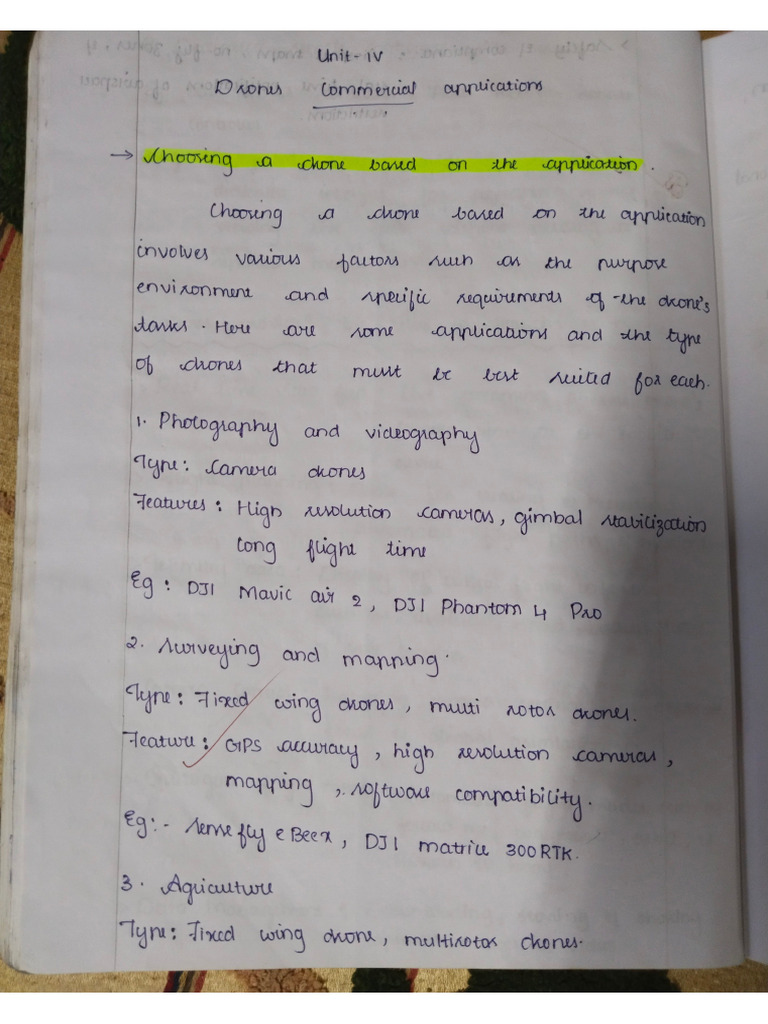 Unit-IV
Drones Commercial applications
→ Choosing a drone based on the application.
Choosing a drone based on the application
involves various factors such as the purpose
environment and specific requirements of the drone's
tasks. Here are some applications and the type
of drones that must be best suited for each.
1. Photography and videography
Type: Camera drones
Features: High resolution cameras, gimbal stabilization
long flight time
Eg: DJI Mavic air 2, DJI Phantom 4 Pro
2. Surveying and mapping.
Type: Fixed wing drones, multi rotor drones.
Feature: GPS accuracy, high resolution cameras,
mapping, software compatibility.
Eg:- Sensefly eBeex, DJI matrice 300RTK.
3. Agriculture
Type: Fixed wing drone, multirotor drones.